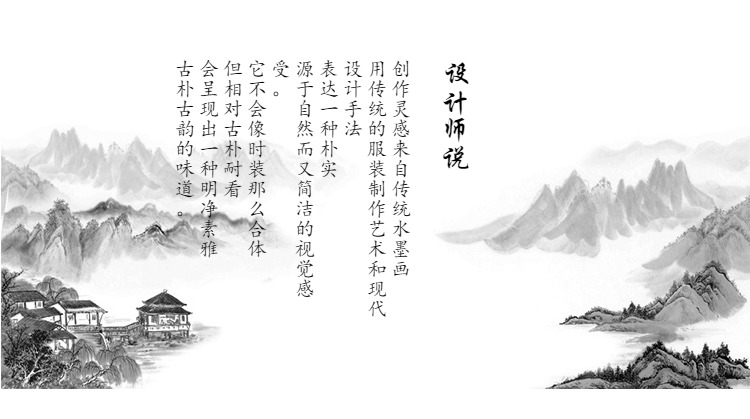 设计师说
创作灵感来自传统水墨画
用传统的服装制作艺术和现代
设计手法
表达一种朴实
源于自然而又简洁的视觉感
受。
它不会像时装那么合体
但相对古朴耐看
会呈现出一种明净素雅
古朴古韵的味道。